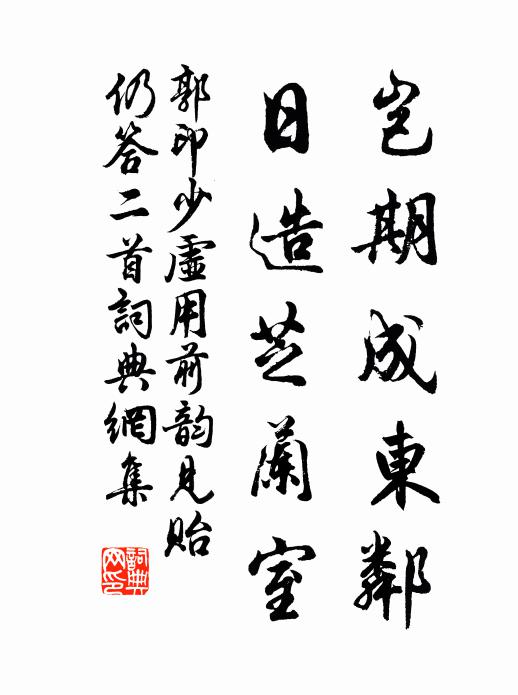 岂期成東鄰
日造芝蘭室
郭印少虛用前韵見貽
仍答二首詞典網集
詞典网印